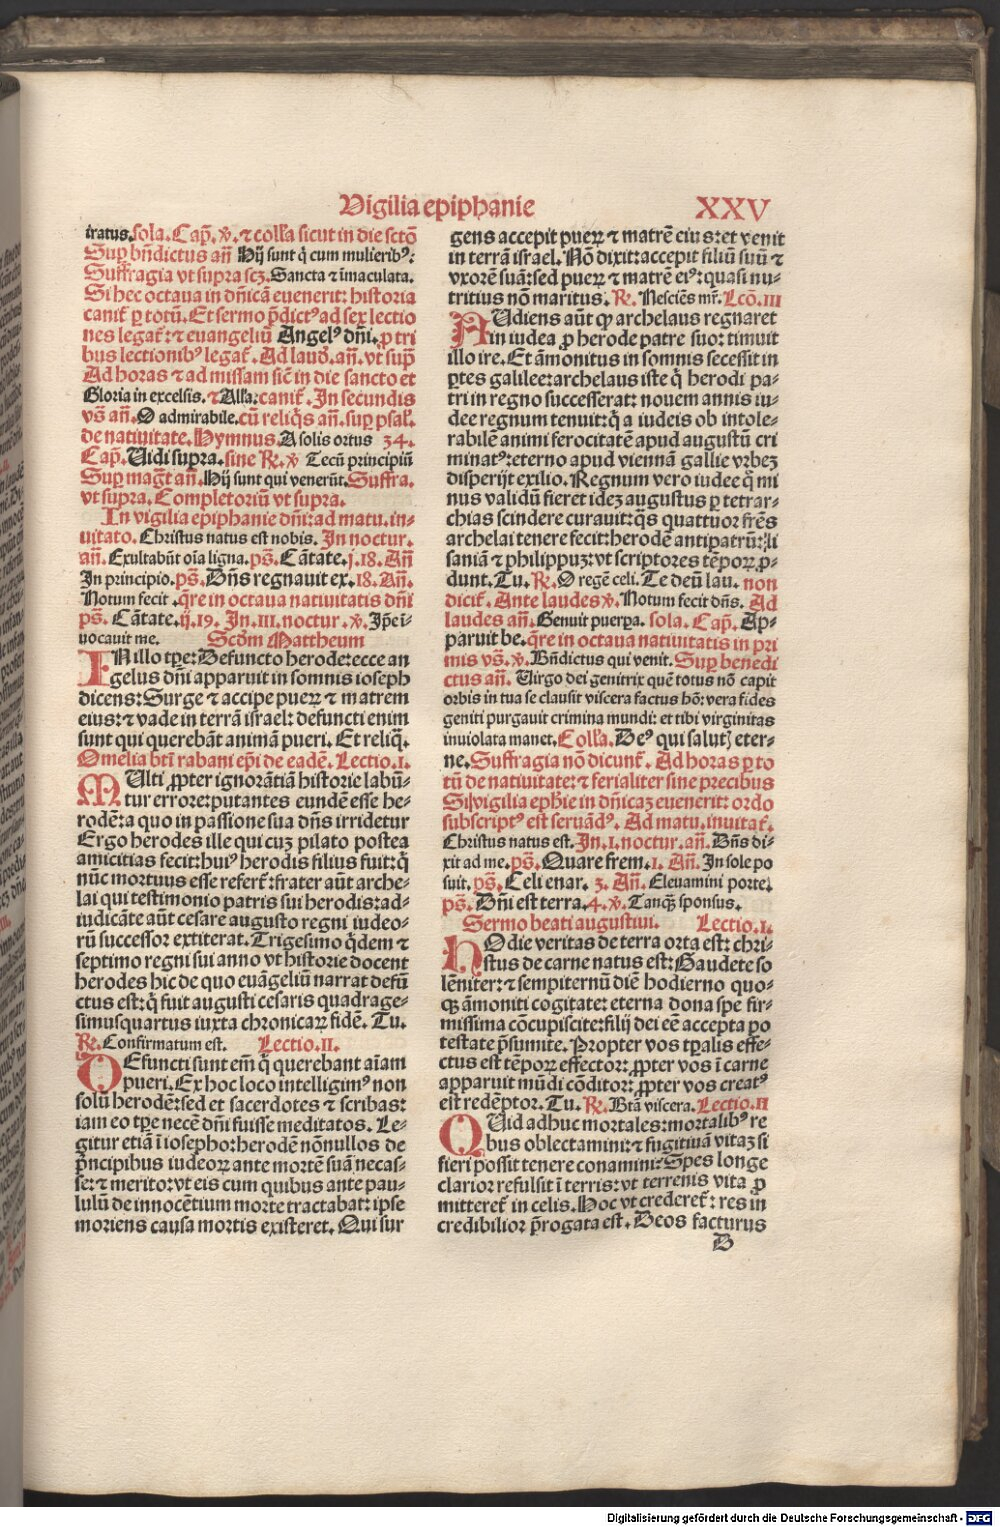 Vigilia epiphanie XXV
iratus. sola. Cap̄. ꝟ. ⁊ coll'a sicut in die sctō
Sup̲ bn̄dictus an̄ Hij sunt q̄ cum mulierib⁹:
Suffragia vt supra scꝫ. Sancta ⁊ īmaculata.
Si hec octaua in dn̄icā euenerit: historia
canit̄ p̲ totū. Et sermo p̄dict⁹ ad sex lectio
nes legat̄: ⁊ euangeliū Angel⁹ dn̄i. ꝓ tri
bus lectionib⁹ legat̄. Ad laud̄. an̄. vt sup̄
Ad horas ⁊ ad missam sic̄ in die sancto et
Gloria in excelsis. ⁊ All'a: canit̄. In secundis
vs̄ an̄. O admirabile. cū reliq̄s an̄. sup̲ psal̄.
de natiuitate. Hymnus. A solis ortus 34.
Cap̄. Uidi supra. sine ℞. ꝟ Tecū principiū
Sup̲ mag̅t̅ an̄. Hij sunt qui venerūt. Suffra.
vt supra. Completoriū vt supra.
In vigilia epiphanie dn̄i: ad matu. in-
uitato. Christus natus est nobis. In noctur.
an̄. Exultabūt oīa ligna. ps̄. Cātate. j. 18. An̄
In principio. ps̄. Dn̄s regnauit ex. 18. An̄.
Notum fecit. q̄re in octaua natiuitatis dn̄i
ps̄. Cātate. ij. 19. In. III. noctur. ꝟ. Ip̄e ī-
uocauit me. Scd̄m Mattheum
IN illo tp̄re: Defuncto herode: ecce an
gelus dn̄i apparuit in somnis ioseph
dicens: Surge ⁊ accipe pueꝝ ⁊ matrem
eius: ⁊ vade in terrā israel: defuncti enim
sunt qui querebāt animā pueri. Et reliq̄.
Omelia bt̄i rabani ep̄i de eadē. Lectio. I.
MUlti ꝓpter ignorātiā historie labū-
tur errore: putantes eundē esse he-
rodē: a quo in passione sua dn̄s irridetur
Ergo herodes ille qui cuꝫ pilato postea
amicitias fecit: hui⁹ herodis filius fuit: q̄
nūc mortuus esse refert̄: frater aūt arche-
lai qui testimonio patris sui herodis: ad-
iudicāte aūt cesare augusto regni iudeo-
rū successor extiterat. Trigesimo q̇dem ⁊
septimo regni sui anno vt historie docent
herodes hic de quo euāgeliū narrat defū
ctus est: q̄ fuit augusti cesaris quadrage-
simusquartus iuxta chronicaꝝ fidē. Tu.
℞. Confirmatum est. Lectio. II.
DEfuncti sunt em̄ q̄ querebant aīam
pueri. Ex hoc loco intelligim⁹ non
solū herodē: sed et sacerdotes ⁊ scribas:
iam eo tp̄e necē dn̄i fuisse meditatos. Le-
gitur etiā ī iosepho: herodē nōnullos de
p̄ncipibus iudeoꝝ ante mortē suā necas-
se: ⁊ merito: vt eis cum quibus ante pau-
lulū de innocētium morte tractabat: ipse
moriens causa mortis existeret. Qui sur
gens accepit pueꝝ ⁊ matrē eius: et venit
in terrā israel. Nō dixit: accepit filiū suū ⁊
vxorē suā: sed pueꝝ ⁊ matrē ei⁹: quasi nu-
tritius nō maritus. ℞. Nesciēs mr̄. Lcō. III
AUdiens aūt ꝙ archelaus regnaret
in iudea ꝓ herode patre suo: timuit
illo ire. Et āmonitus in somnis secessit in
p̲tes galilee: archelaus iste q̇ herodi pa-
tri in regno successerat: nouem annis iu-
dee regnum tenuit: q̇ a iudeis ob intole-
rabilē animi ferocitatē apud augustū cri
minat⁹: eterno apud viennā gallie vrbeꝫ
disperijt exilio. Regnum vero iudee q̇ mi
nus validū fieret ideꝫ augustus p̲ tetrar-
chias scindere curauit: q̄s quattuor fr̄es
archelai tenere fecit: herodē antipatrū: li
saniā ⁊ philippuꝫ: vt scriptores tēpoꝝ p̲-
dunt. Tu. ℞. O regē celi. Te deū lau. non
dicit̄. Ante laudes ꝟ. Notum fecit dn̄s. Ad
laudes an̄. Genuit puerpa. sola. Cap̄. Ap-
paruit be. q̄re in octaua natiuitatis in pri
mis vs̄. ꝟ. Bn̄dictus qui venit. Sup̲ benedi
ctus an̄. Uirgo dei genitrix quē totus nō capit
orbis in tua se clausit viscera factus hō: vera fides
geniti purgauit crimina mundi: et tibi virginitas
inuiolata manet. Coll'a. De⁹ qui saluꝫ eter-
ne. Suffragia nō dicunt̄. Ad horas p̲ to
tū de natiuitate: ⁊ ferialiter sine precibus
Si vigilia eph'ie in dn̄icaꝫ euenerit: ordo
subscript⁹ est seruād⁹. Ad matu. inuitat̄.
Christus natus est. In. I. noctur. an̄. Dn̄s di-
xit ad me. ps̄. Quare frem. 1. An̄. In sole po
suit. ps̄. Celi enar. 3. An̄. Eleuamini porte.
ps̄. Dn̄i est terra. 4. ꝟ. Tanqꝫ sponsus.
Sermo beati augustini. Lectio. I.
HOdie veritas de terra orta est: chri-
stus de carne natus est: Gaudete so
lēniter: ⁊ sempiternū diē hodierno quo-
qꝫ āmoniti cogitate: eterna dona spe fir-
missima cōcupiscite: filij dei eē accepta po
testate p̄sumite. Propter vos tp̲alis effe-
ctus est tēpoꝝ effector: ꝓpter vos ī carne
apparuit mūdi cōditor: ꝓpter vos creat⁹
est redēptor. Tu. ℞. Btā viscera. Lectio. II
QUid adhuc mortales: mortalib⁹ re
bus oblectamini: ⁊ fugitiuā vitaꝫ si
fieri possit tenere conamini: Spes longe
clarior refulsit ī terris: vt terrenis vita ꝓ
mitteret̄ in celis. Hoc vt crederet̄: res in
credibilior p̄rogata est. Deos facturus
B
Digitalisierung gefördert durch die Deutsche Forschungsgemeinschaft - DFG